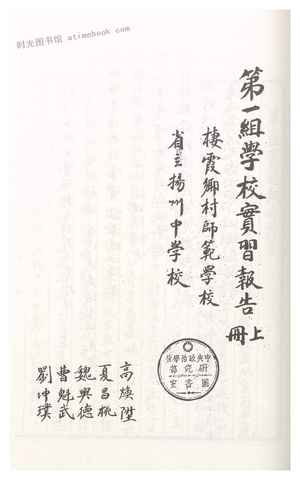 时光图书馆 atimebook.com
第一組學校實習報告 上
冊
棲霞鄉村師範學校
省立揚州中學校
中央政治學校
研究部
圖書室
高煥陞
夏昌桃
魏興德
曹魁武
劉沖璞